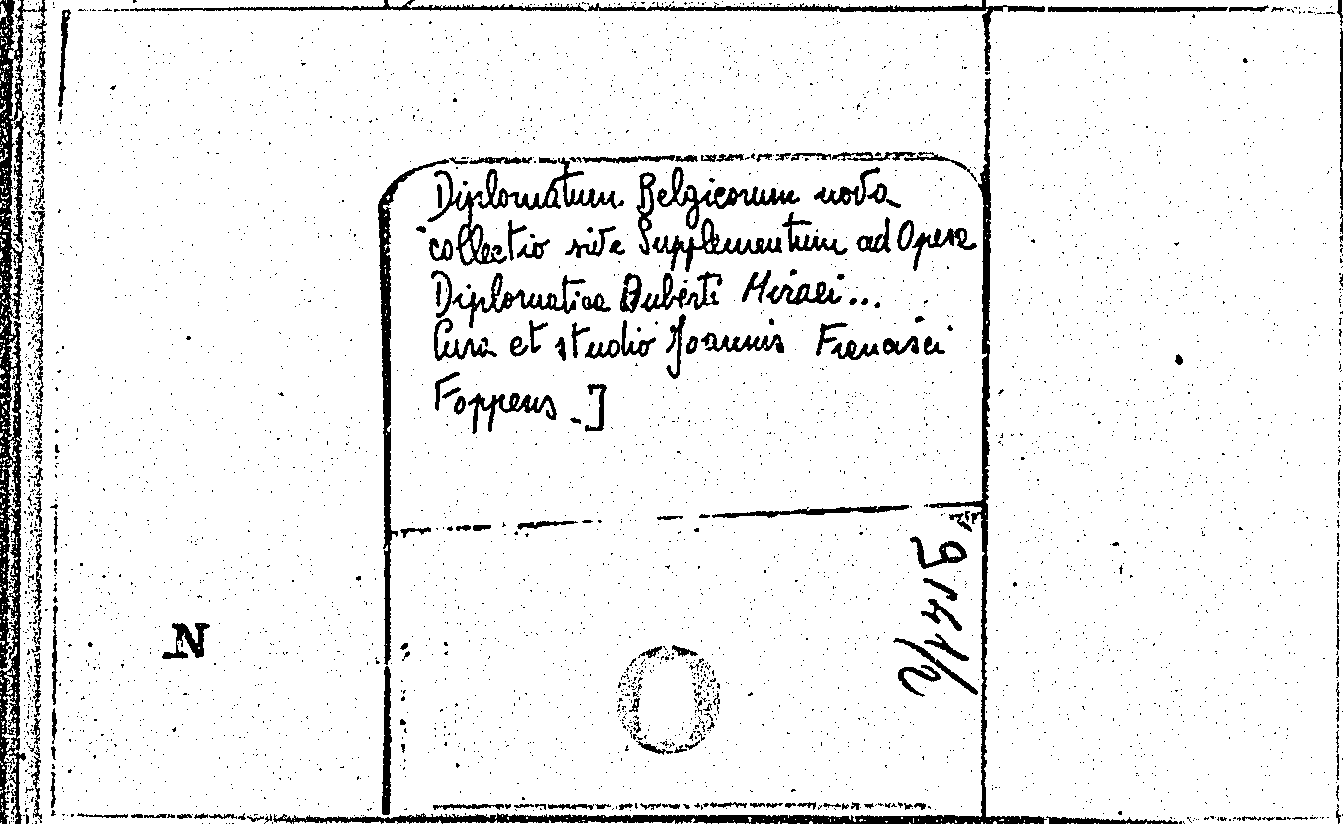 Diplomatum Belgicorum nova
collectio sive Supplementum ad Opera
Diplomatica Auberti Miraei...
Cura et studio Joannis Francisci
Foppens -]
N